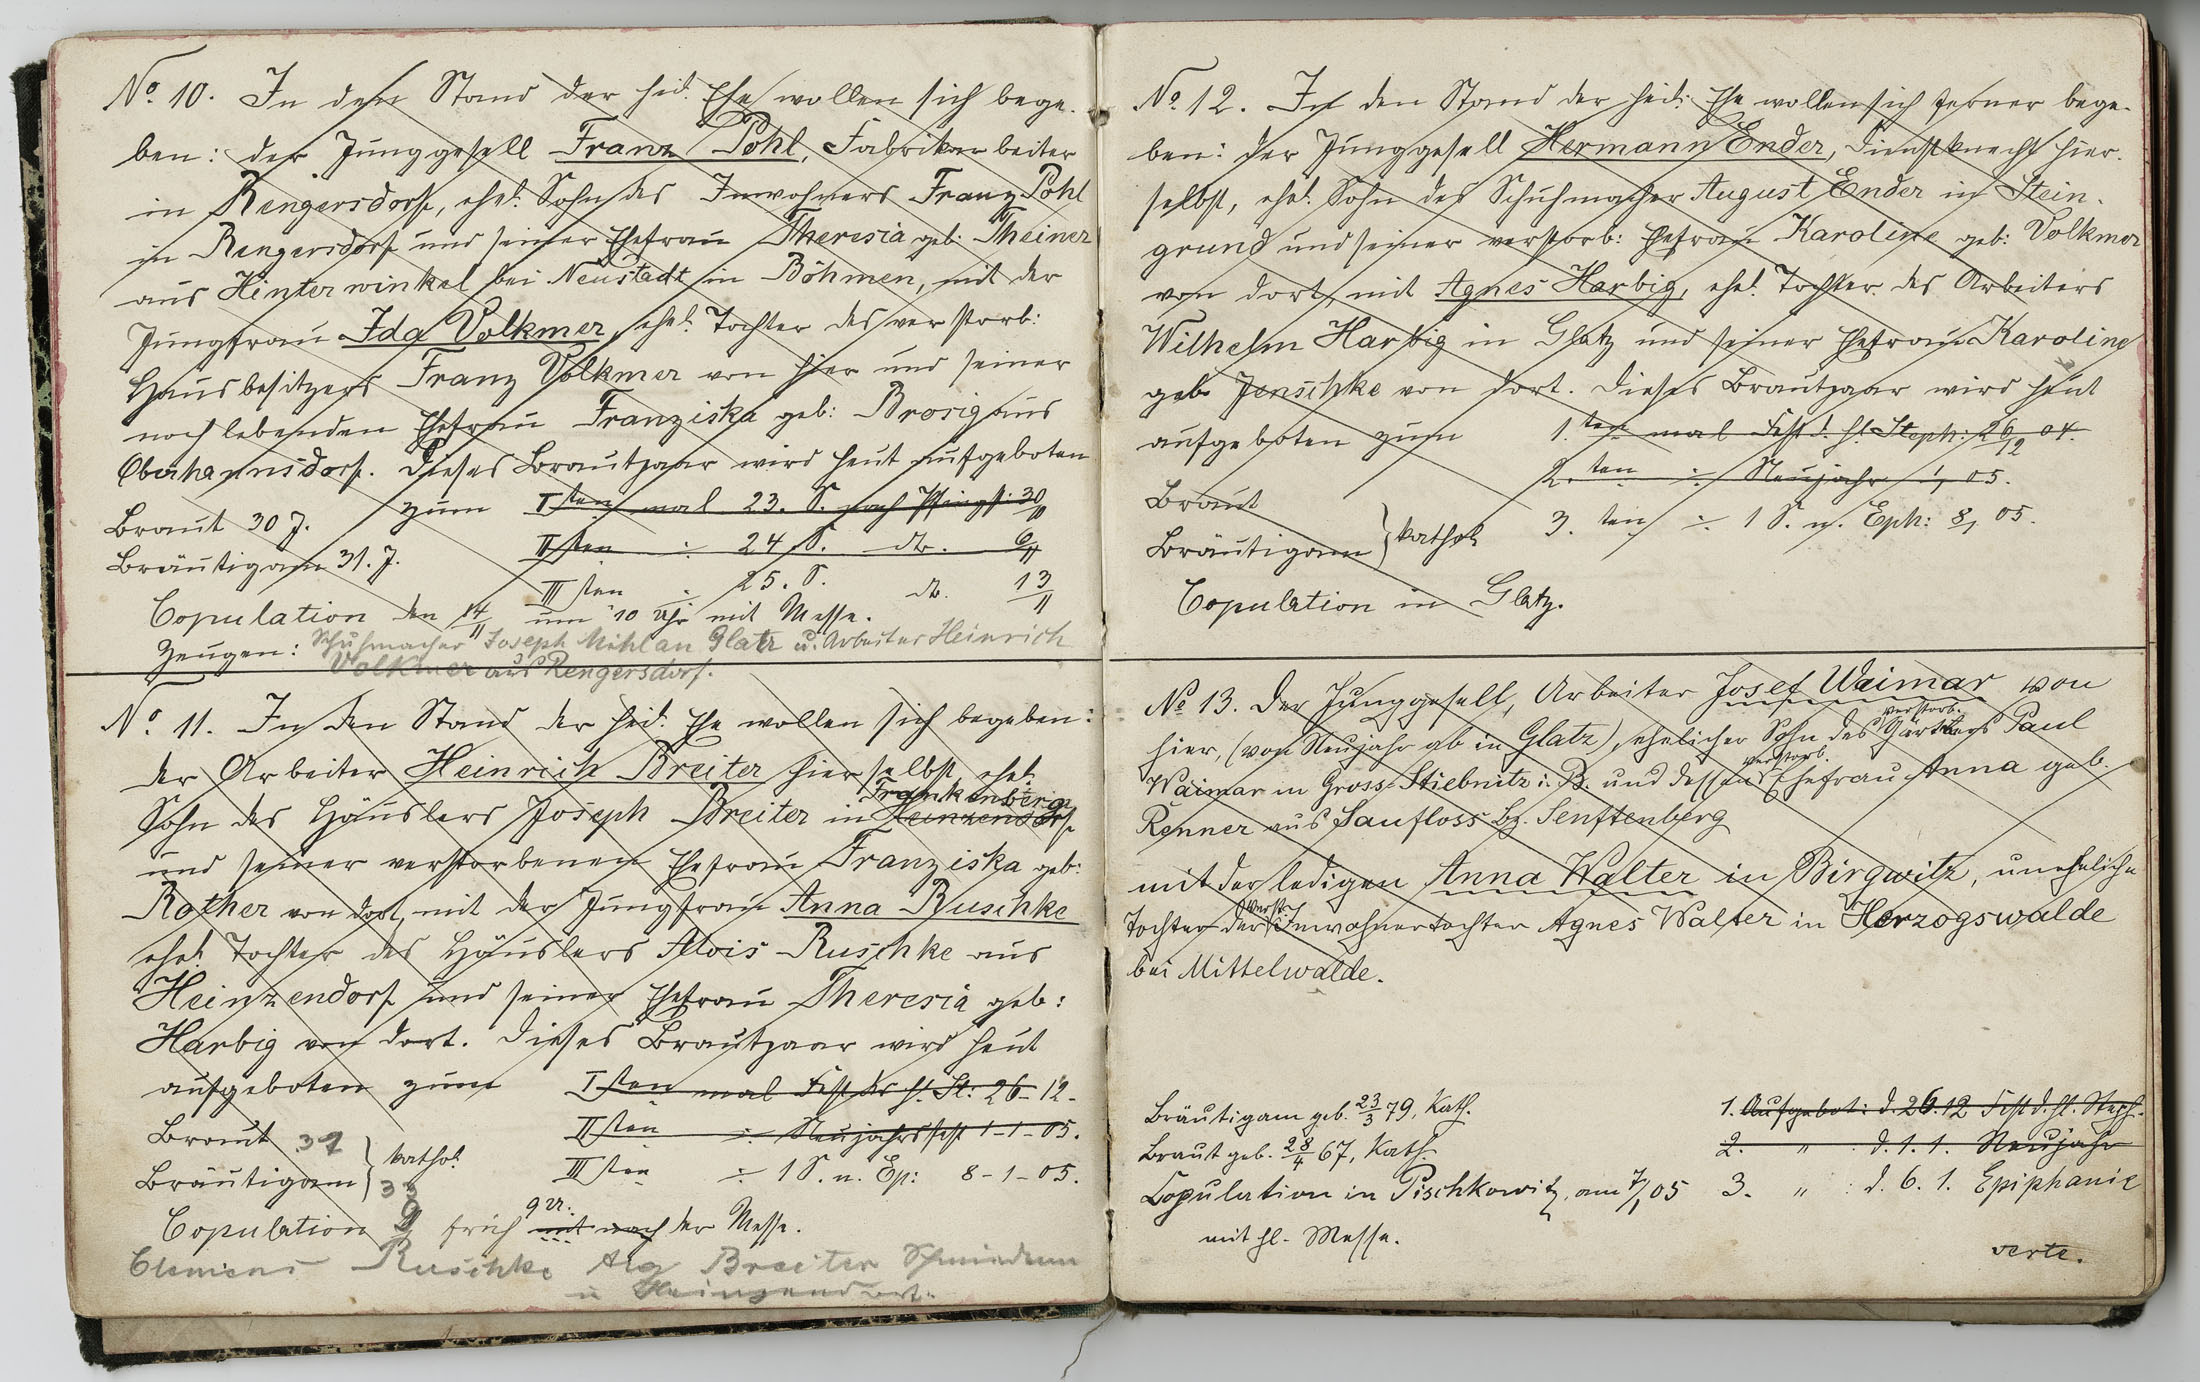 No. 10. In den Stand der heil. Ehe wollen sich bege-
ben: der Junggesell Franz Pohl, Fabrikarbeiter
in Rengersdorf, ehel. Sohn des Inwohners Franz Pohl
in Rengersdorf und seiner Ehefrau Theresia geb: Theiner
aus Hinterwinkel bei Neustadt in Böhmen, mit der
Jungfrau Ida Volkmer, ehel. Tochter des verstorb:
Hausbesitzers Franz Volkmer von hier und seiner
noch lebenden Ehefrau Franziska geb: Brosig aus
Oberhannsdorf. Dieses Brautpaar wird heut aufgeboten
zum Isten mal 23. S. nach Pfingst: 30/10
Braut 30 J.
IIsten : 24 S. do. 6/11
Bräutigam 31. J.
IIIsten : 25. S. do. 13/11
Copulation den 14/11 um 10 Uhr mit Messe.
Zeugen: Schuhmacher Joseph Mihlan Glatz u. Arbeiter Heinrich
Volkmer aus Rengersdorf.
No. 11. In den Stand der heil. Ehe wollen sich begeben:
der Arbeiter Heinrich Breiter hierselbst, ehel.
Sohn des Häuslers Joseph Breiter in Heinzendorf Frankenberg
und seiner verstorbenen Ehefrau Franziska geb:
Rother von dort, mit der Jungfrau Anna Ruschke
ehel. Tochter des Häuslers Alois Ruschke aus
Heinzendorf und seiner Ehefrau Theresia geb:
Harbig von dort. Dieses Brautpaar wird heut
aufgeboten zum Isten mal Fest des hl. St: 26-12-
IIsten ÷ Neujahrsfest 1-1-05.
Braut
Bräutigam 33 } kathol.
IIIsten ÷ 1 S. n. Ep: 8-1-05.
Copulation früh 9 Ur. mit nach der Messe.
Clemens Ruschke Breiter
u Heinzendorf.
No. 12. In den Stand der heil: Ehe wollen sich ferner bege-
ben: der Junggesell Hermann Ender, Dienstknecht hier-
selbst, ehel. Sohn des Schuhmacher August Ender in Stein-
grund und seiner verstorb: Ehefrau Karoline geb: Volkmer
von dort, mit Agnes Harbig, ehel. Tochter des Arbeiters
Wilhelm Harbig in Glatz und seiner Ehefrau Karoline
geb. Jenschke von dort. Dieses Brautpaar wird heut
aufgeboten zum 1.ten mal Fest d. hl. Steph: 26/12 04.
2.ten ÷ Neujahr 1/1 05.
Braut
Bräutigam } kathol.
3.ten ÷ 1 S. n. Eph: 8/1 05.
Copulation in Glatz.
No 13. Der Junggesell, Arbeiter Josef Waimar von
hier, (von Neujahr ab in Glatz), ehelicher Sohn des verstorb. Gärtners Paul
Waimar in Gross-Stiebnitz i. B. und dessen verstorb. Ehefrau Anna geb.
Renner aus Saufloss Bz. Senftenberg
mit der ledigen Anna Walter in Birgwitz, uneheliche
Tochter der verst. Inwohnertochter Agnes Walter in Herzogswalde
bei Mittelwalde.
Bräutigam geb. 23/3 79, Kath.
1. Aufgebot: d. 26.12 Fest d. hl. Steph.
Braut geb. 28/4 67, Kath.
2. " : d. 1. 1. Neujahr
Copulation in Pischkowitz, am 7/1 05
3. " : d. 6. 1. Epiphanie
mit hl. Messe.
verte.